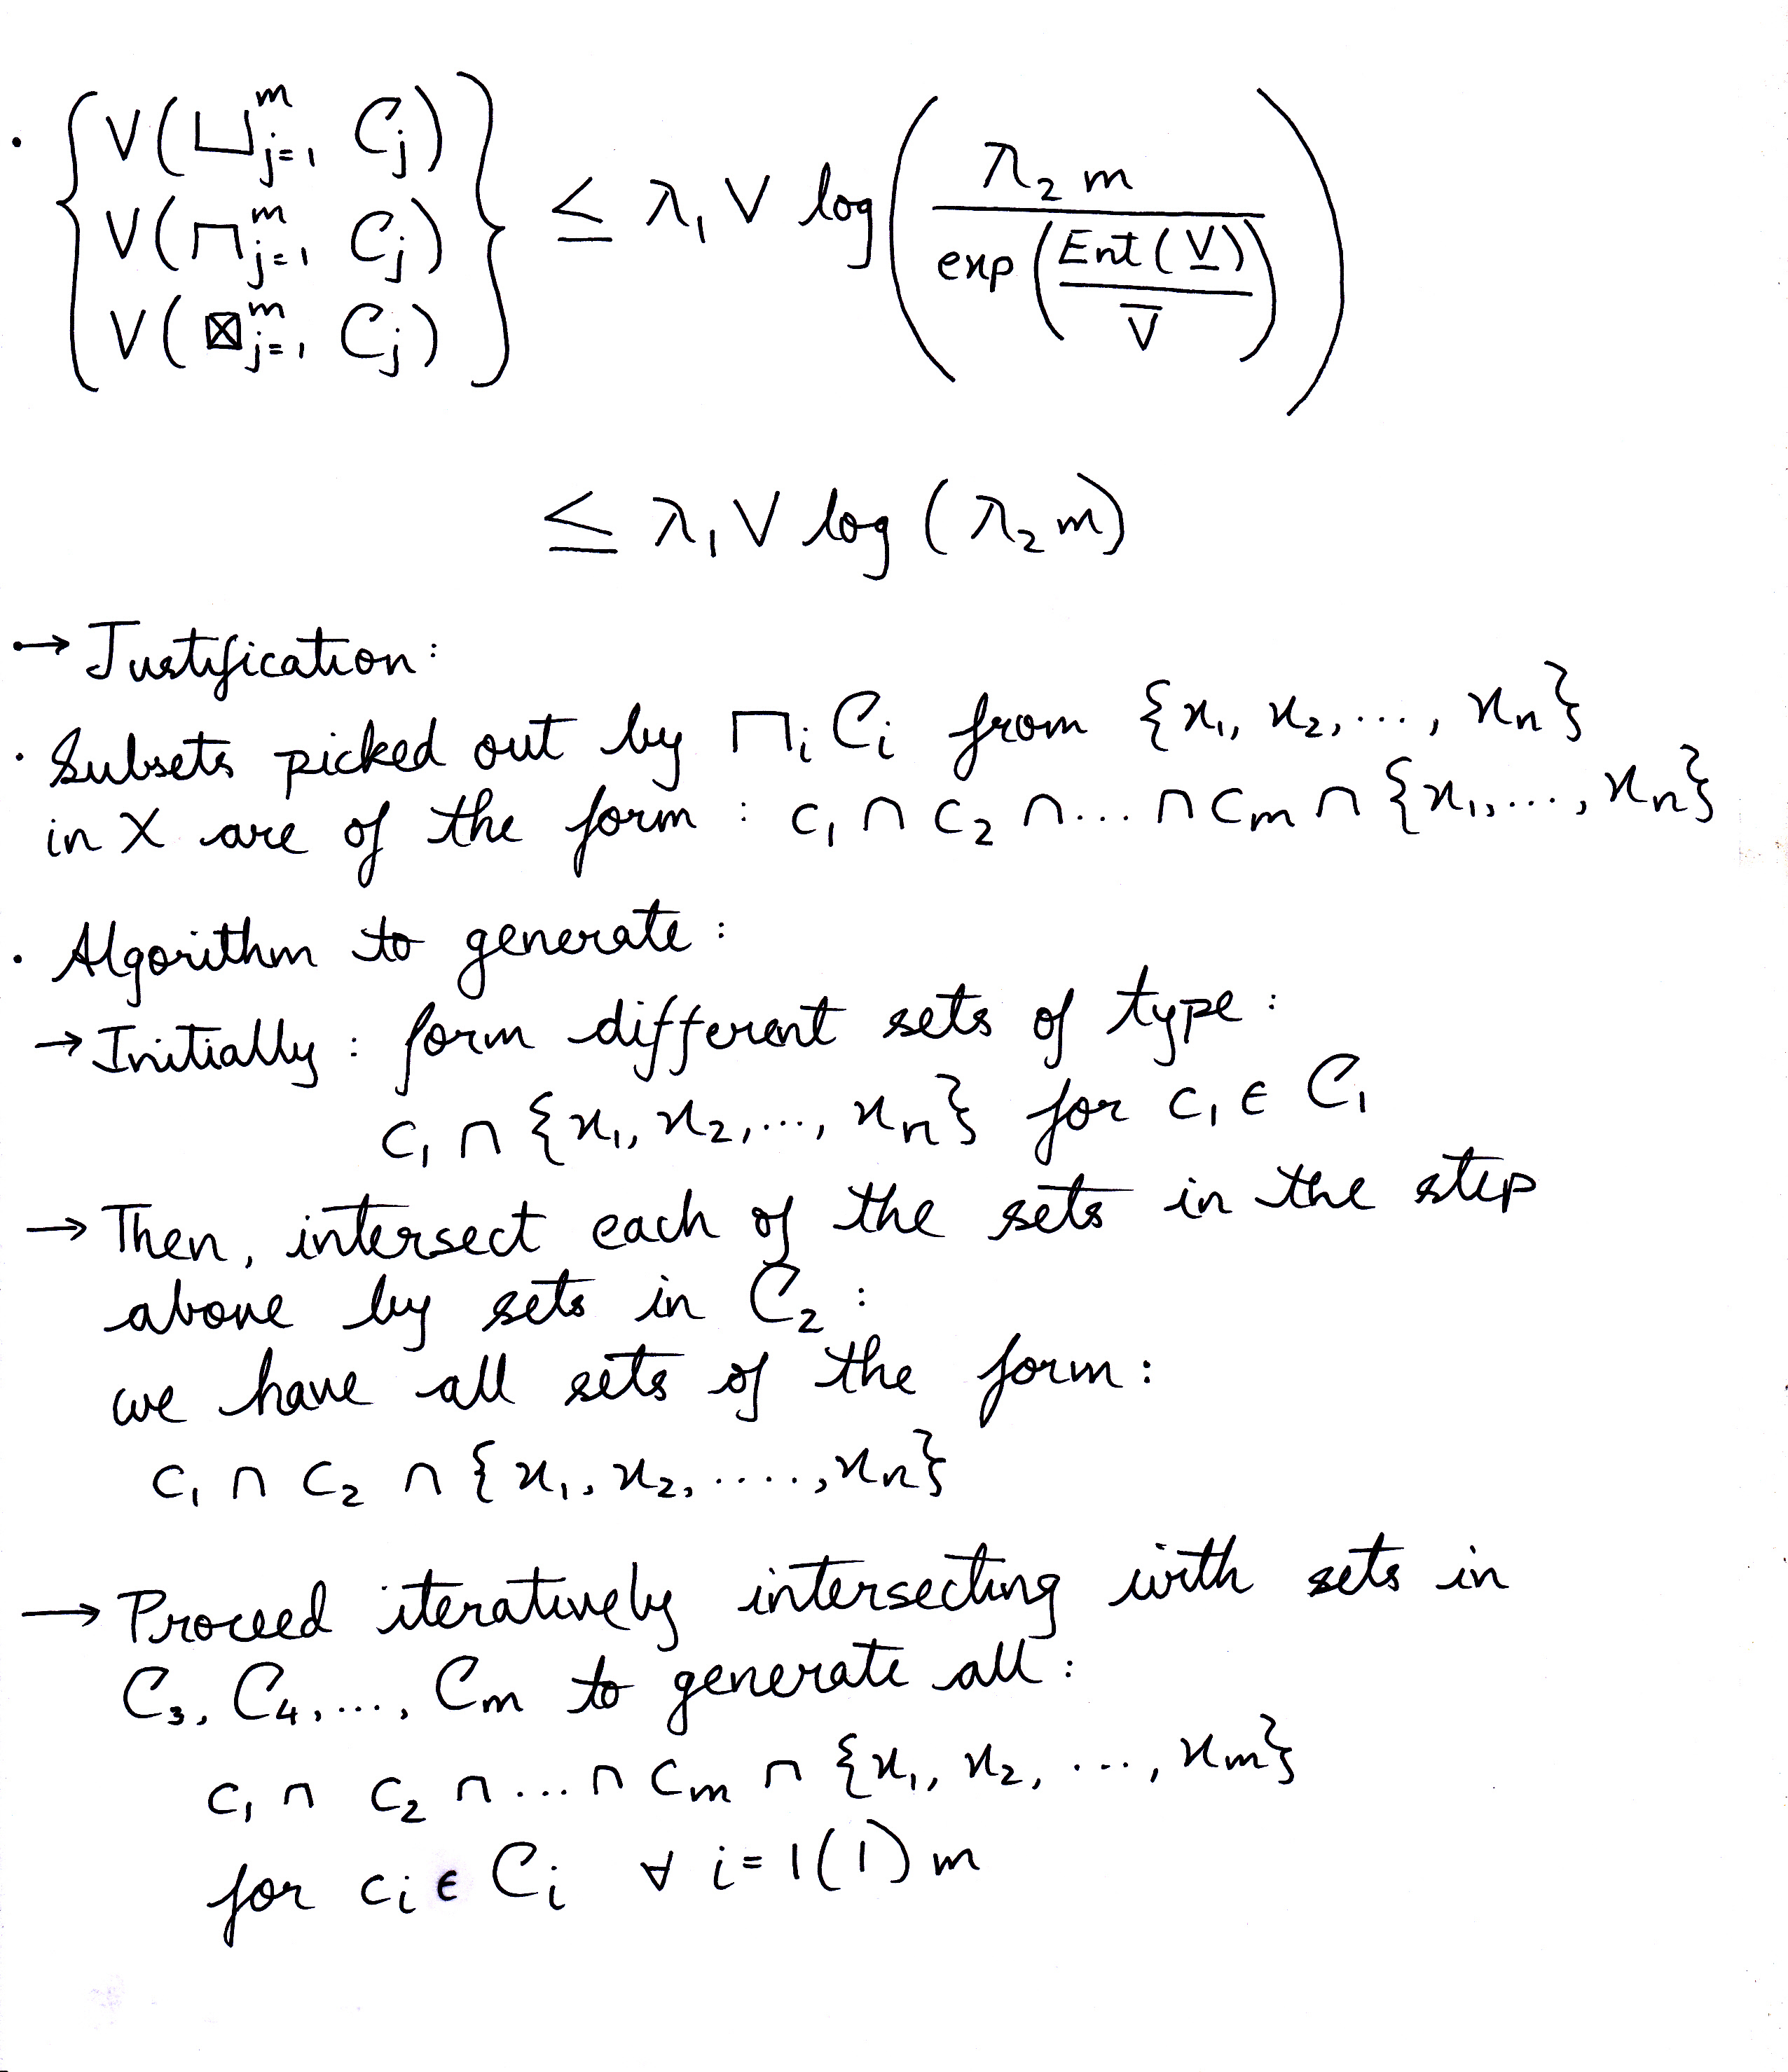 · { V(⊔_{j=1}^m C_j)
V(⊓_{j=1}^m C_j)
V(⊠_{j=1}^m C_j) } ≤ λ_1 V log( λ_2 m / exp( Ent(\underline{V}) / \bar{V} ) )
≤ λ_1 V log(λ_2 m)
→ Justification:
· Subsets picked out by ⊓_i C_i from {x_1, x_2, ..., x_n}
in X are of the form : c_1 ∩ c_2 ∩ ... ∩ c_m ∩ {x_1, ..., x_n}
· Algorithm to generate :
→ Initially : form different sets of type :
c_1 ∩ {x_1, x_2, ..., x_n} for c_1 ∈ C_1
→ Then, intersect each of the sets in the step
above by sets in C_2 :
we have all sets of the form :
c_1 ∩ c_2 ∩ {x_1, x_2, ...., x_n}
→ Proceed iteratively intersecting with sets in
C_3, C_4, ..., C_m to generate all :
c_1 ∩ c_2 ∩ ... ∩ c_m ∩ {x_1, x_2, ..., x_m}
for c_i ∈ C_i ∀ i = 1(1)m